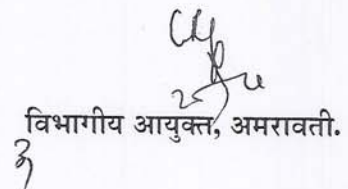 विभागीय आयुक्त, अमरावती.